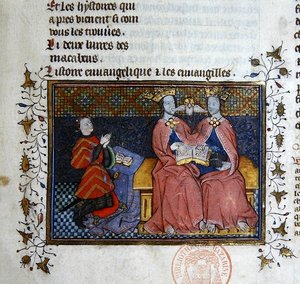 Et les hystoires qui
apres vienent & com
vous les trouues.
Li deux liures des
macabeus.
listoire euuangelique & les euuangilles.